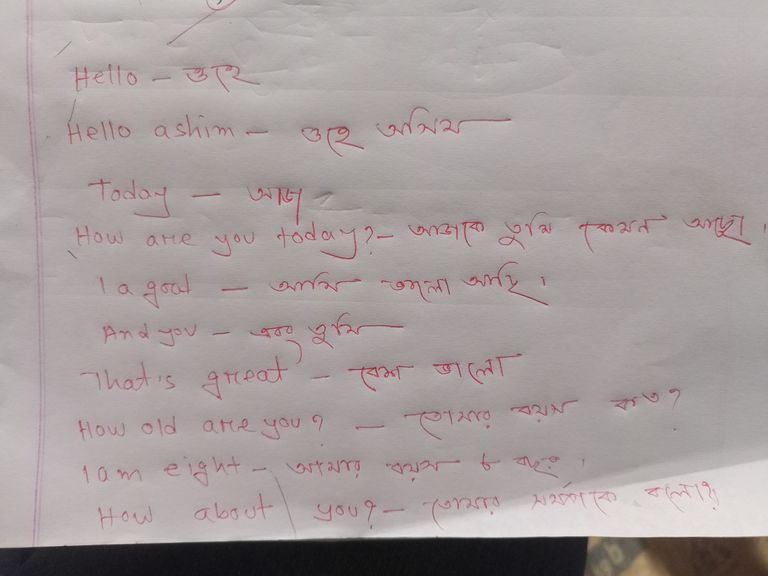 Hello - ওহে
Hello ashim - ওহে অসিম
Today - আজ
How are you today? - আজকে তুমি কেমন আছো।
I a goal - আমি ভালো আছি।
And you - এবং তুমি
That's great - বেশ ভালো
How old are you? - তোমার বয়স কত?
I am eight - আমার বয়স ৮ বছর।
How about you? - তোমার সম্পর্কে বলো?